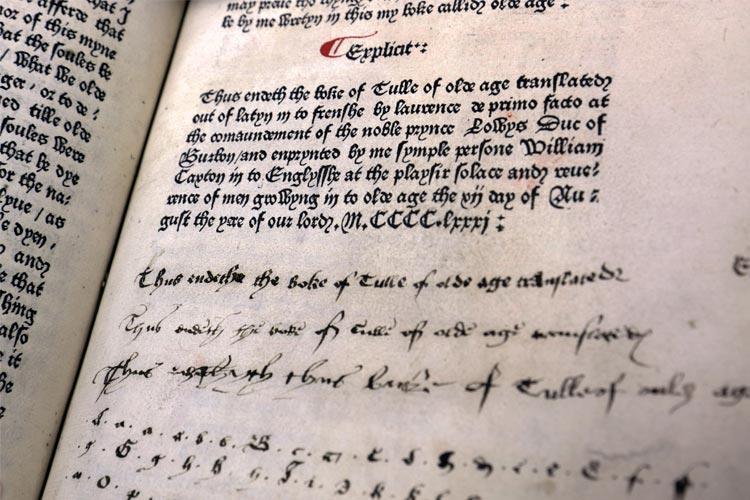 that I
afferde that
or of this myne
at the soules be
/ what we olde
ger / or to de :
ed tille olde
soules were
that he dye
or the na :
lyue / as
e dyen /
and
that
thing
also
it
he
may proue tho
be by me wretyn in this my boke callid olde age :
Explicit :
Thus endeth the boke of Tulle of olde age translated
out of latyn in to frenshe by laurence de primo facto at
the comaundement of the noble prynce Lowys Duc of
Burbon / and enprynted by me symple persone William
Caxton in to Englysshe at the playsir solace and reue :
rence of men growyng in to olde age the xij day of Au :
gust the yere of our lord . M . CCCC . lxxxj :
Thus endeth the boke of Tulle of olde age translated
Thus endeth the boke of Tulle of olde age translated
Thus thus boke of Tulle of age